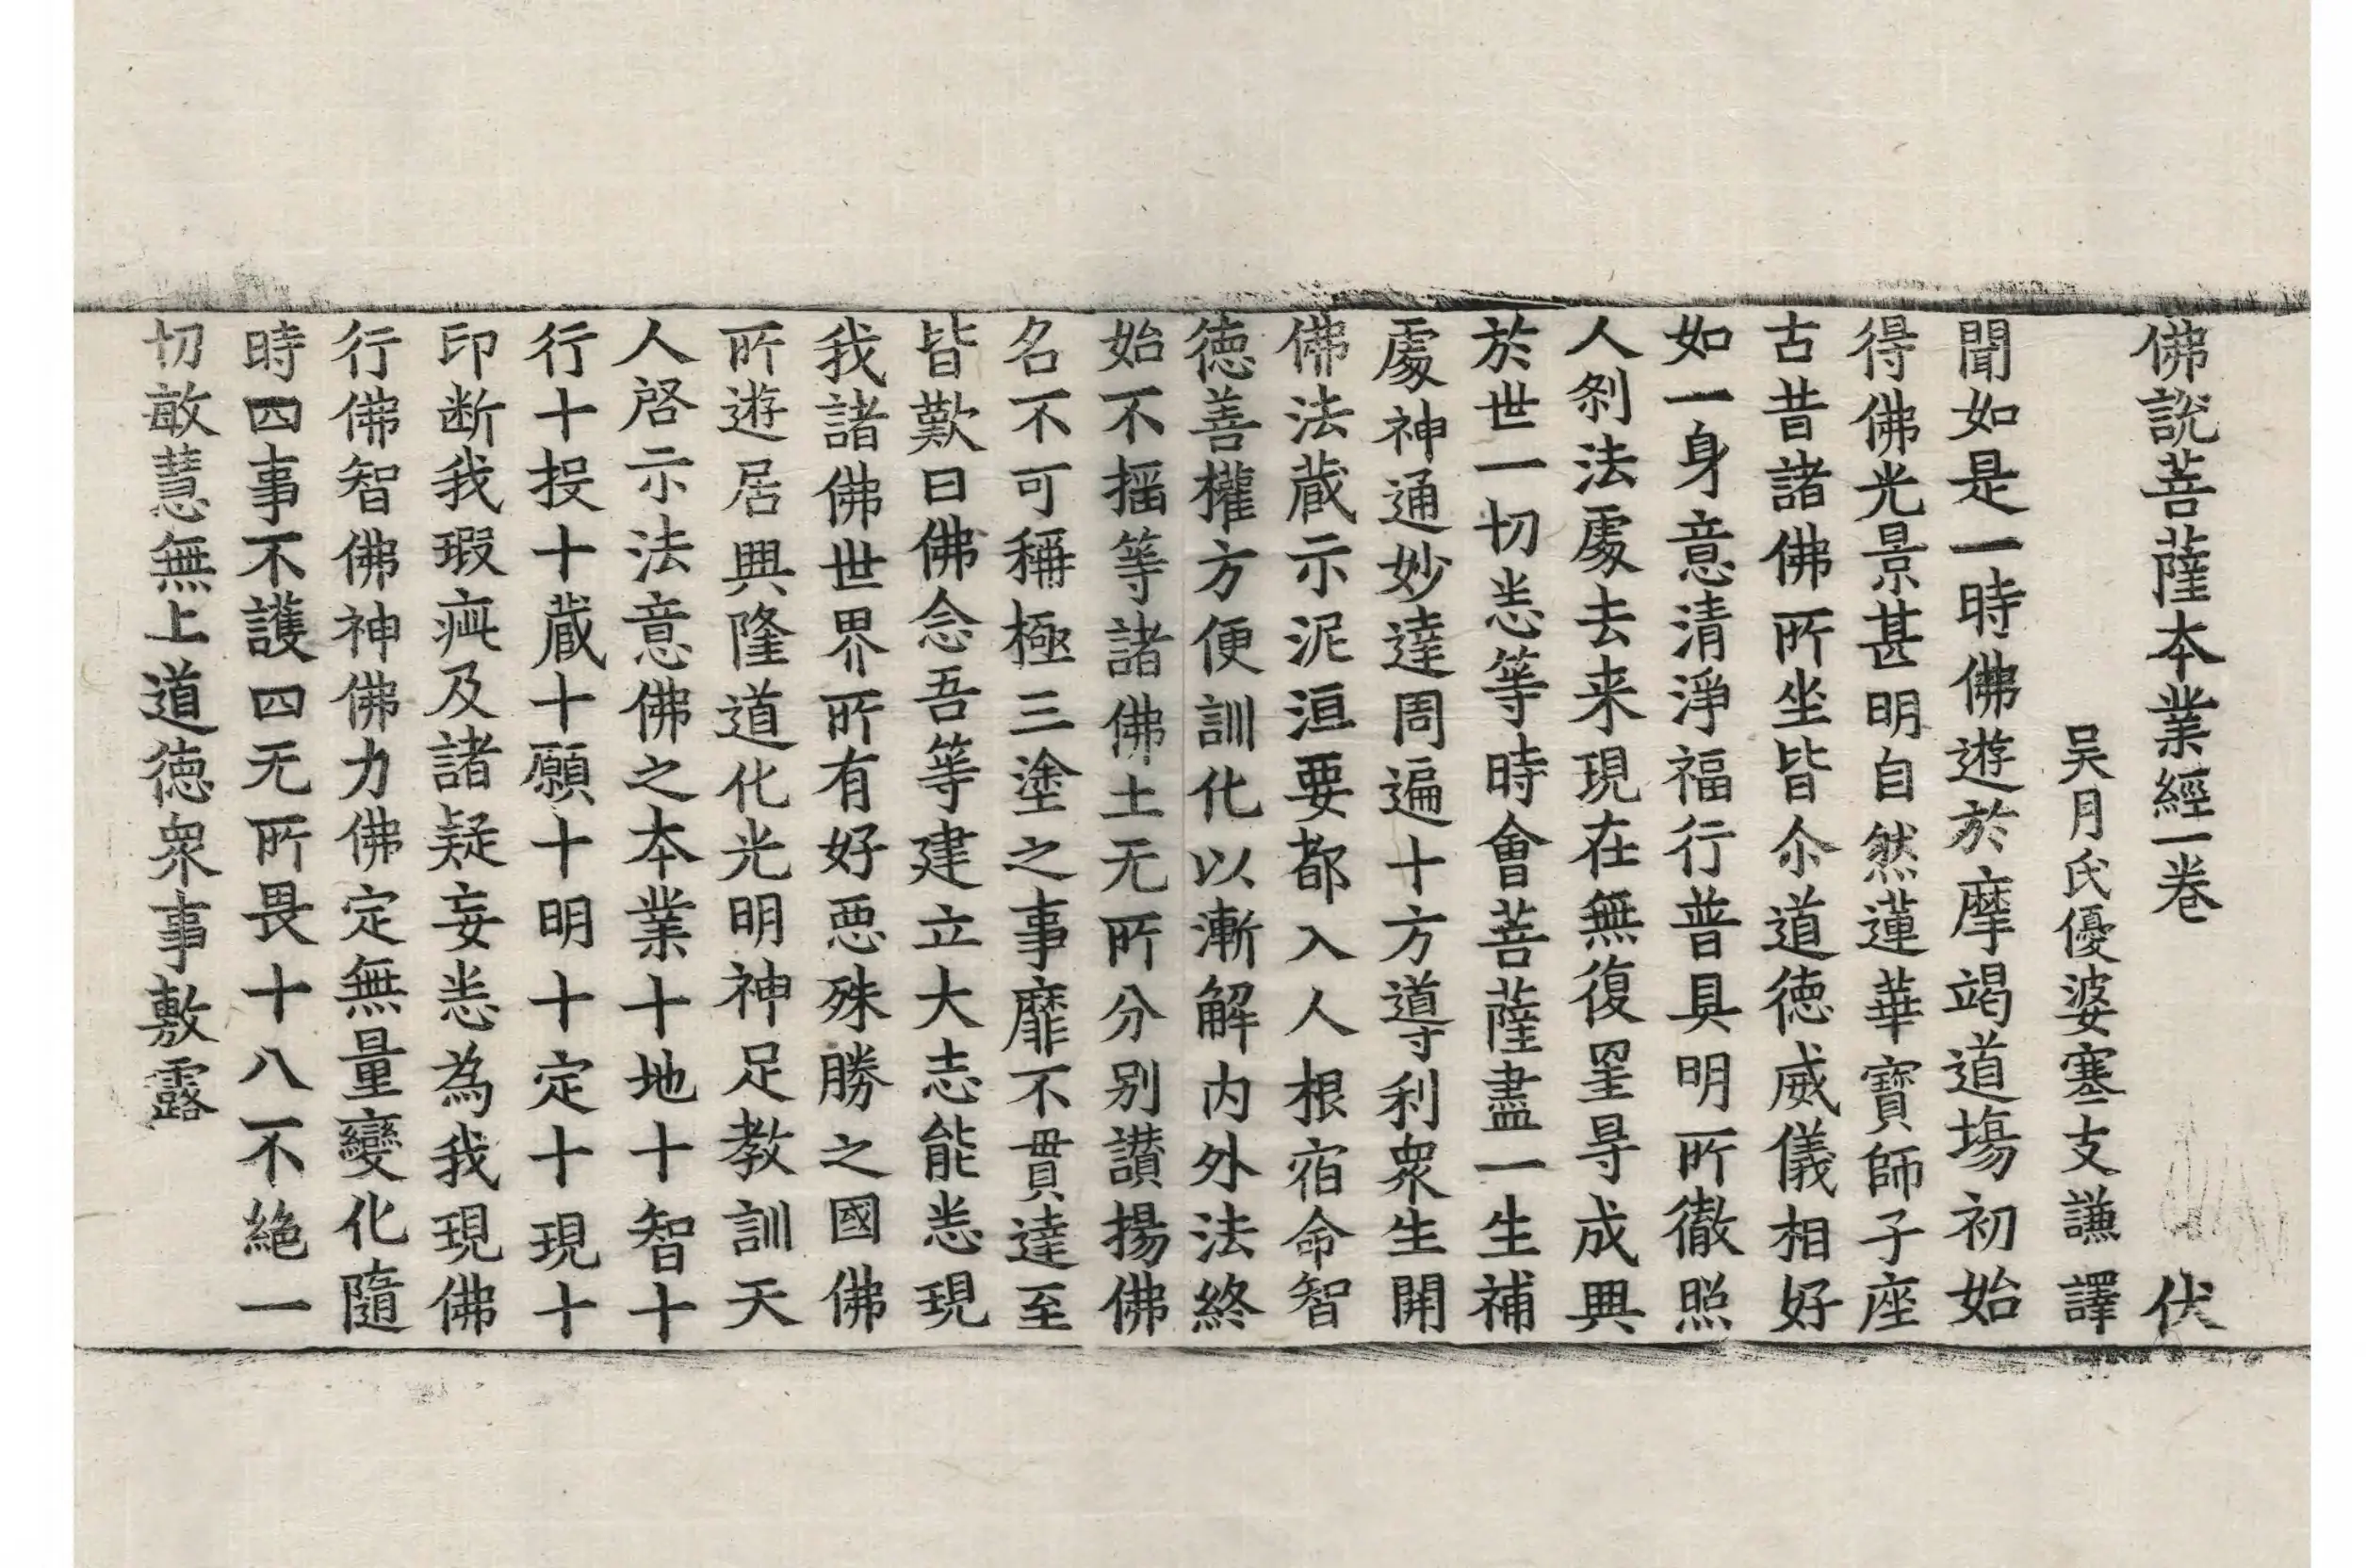 佛說菩薩本業經一卷 伏
吴月氏優婆塞支謙譯
聞如是一時佛遊於摩竭道場初始
得佛光景甚明自然蓮華寶師子座
古昔諸佛所坐皆尒道徳威儀相好
如一身意清淨福行普具明所徹照
人刹法處去来現在無復罣㝵成興
於世一切悉等時會菩薩盡一生補
處神通妙達周遍十方導利衆生開
佛法蔵示泥洹要都入人根宿命智
徳善權方便訓化以漸解内外法終
始不摇等諸佛土无所分别讃揚佛
名不可稱極三塗之事靡不貫達至
皆歎曰佛念吾等建立大志能悉現
我諸佛世界所有好惡殊勝之國佛
所遊居興隆道化光明神足教訓天
人啓示法意佛之本業十地十智十
行十投十蔵十願十明十定十現十
印断我瑕疵及諸疑妄悉為我現佛
行佛智佛神佛力佛定無量變化隨
時四事不護四无所畏十八不絶一
切敢慧無上道徳衆事敷露